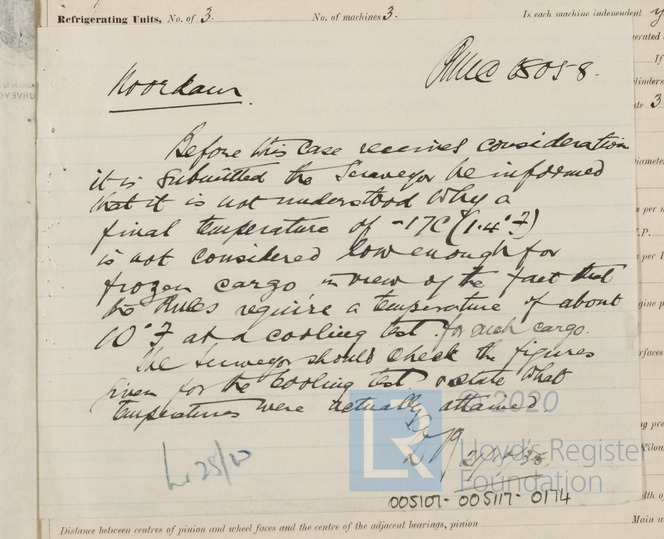 Refrigerating Units, No. of 3. No. of machines 3. Is each machine independent
Noordam.
18058.
Before this case receives consideration
it is submitted the Surveyor be informed
that it is not understood why a
final temperature of -17C (1.4°F)
is not considered low enough for
frozen cargo in view of the fact that
the Rules require a temperature of about
10°F at a cooling test for such cargo.
The Surveyor should check the figures
given for the cooling test & state what
temperatures were actually attained
© 2020
Lloyd's Register
Foundation
005107-005117-0174
Distance between centres of pinion and wheel faces and the centre of the adjacent bearings, pinion